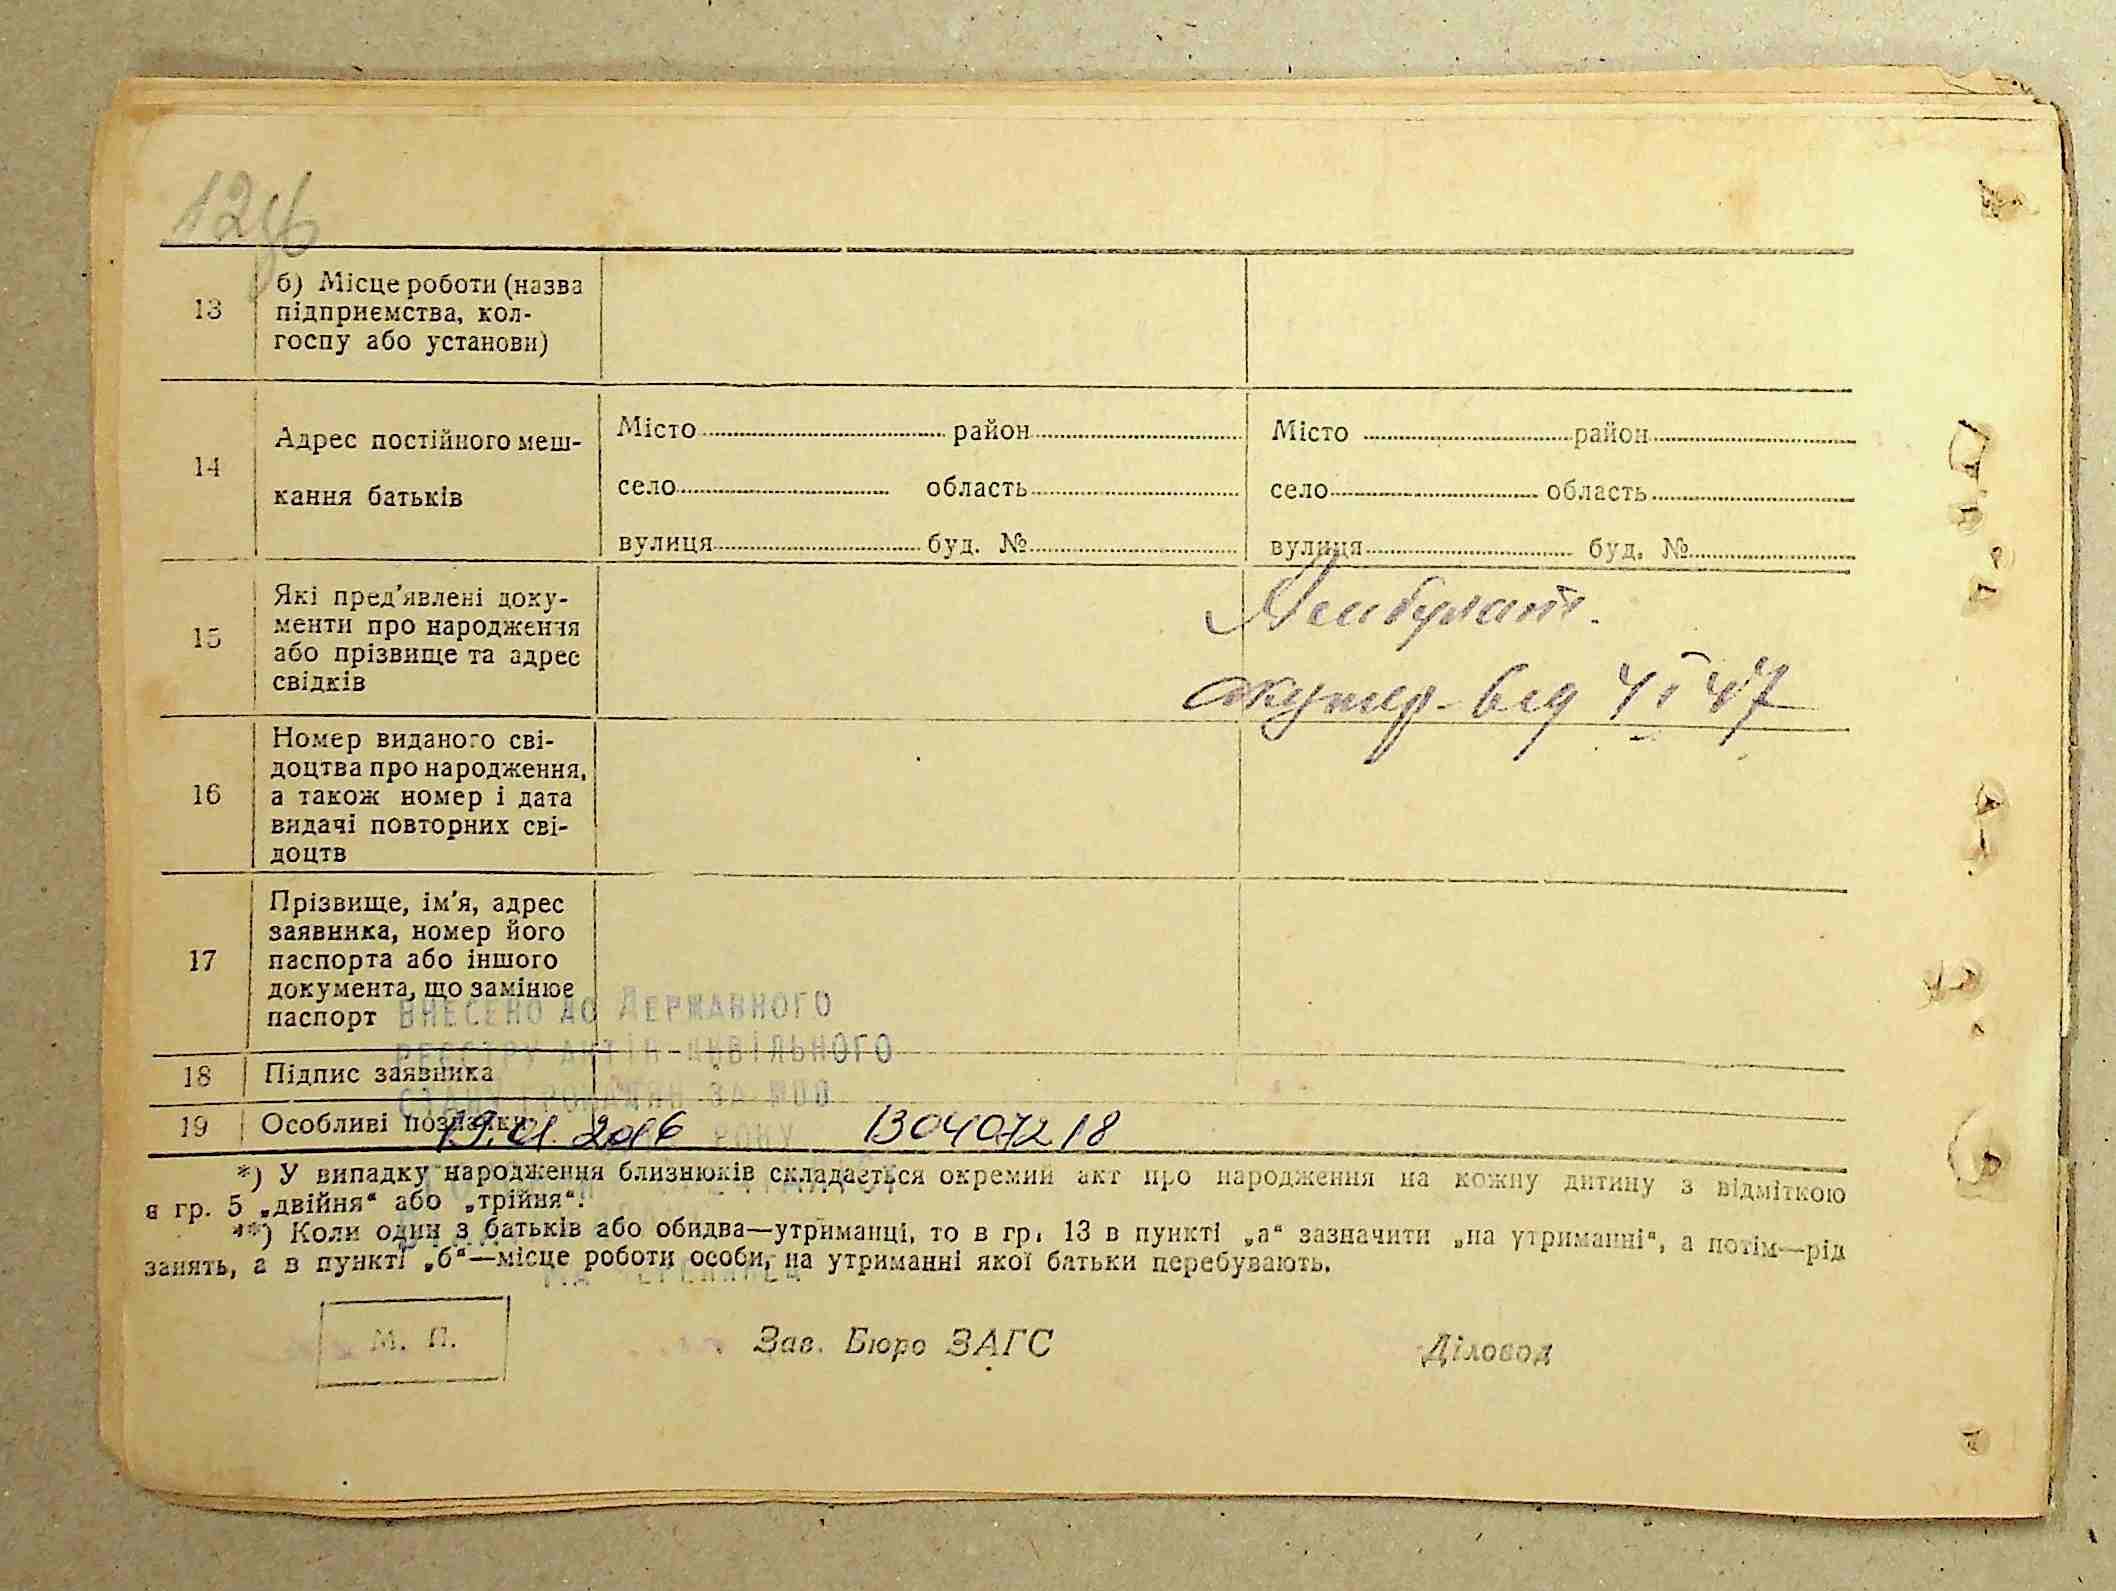 13
б) Місце роботи (назва
підприємства, кол-
госпу або установи)
14
Адрес постійного меш-
кання батьків
Місто район
село область
вулиця буд. №
Місто район
село область
вулиця буд. №
15
Які пред'явлені доку-
менти про народження
або прізвище та адрес
свідків
16
Номер виданого сві-
доцтва про народження,
а також номер і дата
видачі повторних сві-
доцтв
17
Прізвище, ім'я, адрес
заявника, номер його
паспорта або іншого
документа, що замінює
паспорт
ВНЕСЕНО ДО ДЕРЖАВНОГО
РЕЄСТРУ АКТІВ ЦИВІЛЬНОГО
СТАНУ ГРОМАДЯН ЗА
18 Підпис заявника
19 Особливі позначки
РОКУ
*) У випадку народження близнюків складається окремий акт про народження на кожну дитину з відміткою
в гр. 5 „двійня“ або „трійня“.
**) Коли один з батьків або обидва—утриманці, то в гр. 13 в пункті „а“ зазначити „на утриманні“, а потім—рід
занять, а в пункті „б“—місце роботи особи, на утриманні якої батьки перебувають.
М. П.
Зав. Бюро ЗАГС
Діловод